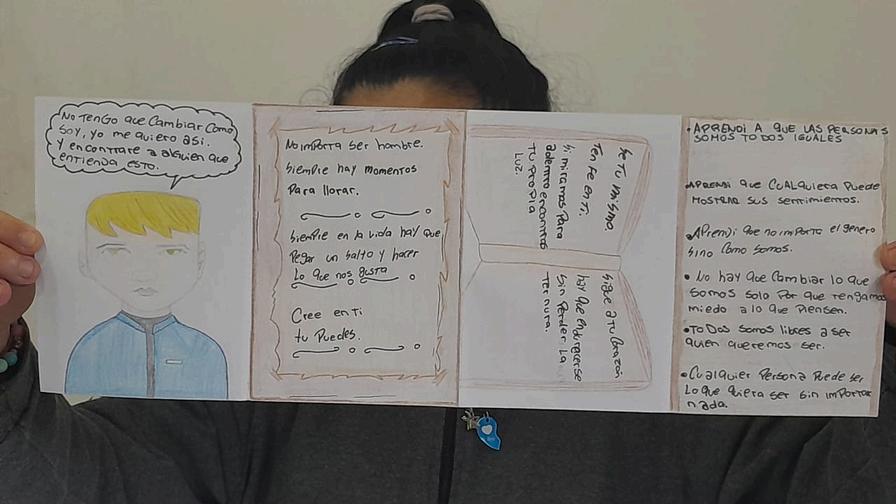 NO TENGO que Cambiar Como
Soy, yo me quiero asi.
Y encontrare a alguien que
entienda esto.
No importa ser hombre.
Siempre hay momentos
Para llorar.
Siempre en la vida hay que
Pegar un salto y hacer
Lo que nos gusta
Cree en ti
tu Puedes.
Se Tu mismo
Ten Fe en Ti.
Si miramos Para
adentro encontramos
Tu propia
Luz.
Sigue a tu Corazón
hay que endurecerse
sin Perder La
Ternura.
• APRENDI A QUE LAS PERSONAS
SOMOS TODOS IGUALES
• APRENDI que CUALQUIERA PUEDE
MOSTRAR SUS SENTIMIENTOS.
• APRENDI que no importa el genero
sino Como somos.
• No hay que Cambiar lo que
somos solo Por que tengamos
miedo a lo que Piensen.
• TODOS somos libres a ser
quien queremos ser.
• CualQuier Persona Puede ser
Lo que quiera ser sin importar
nada.